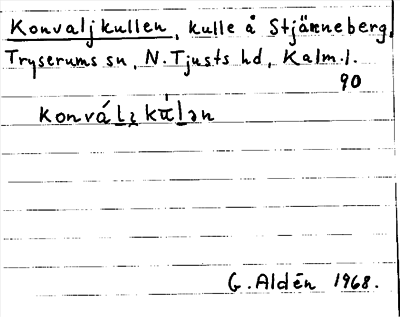 Konvaljkullen, kulle å Stjärneberg,
Tryserums sn, N. Tjusts hd, Kalm. l.
90
konválẓkúlən
G. Aldén 1968.